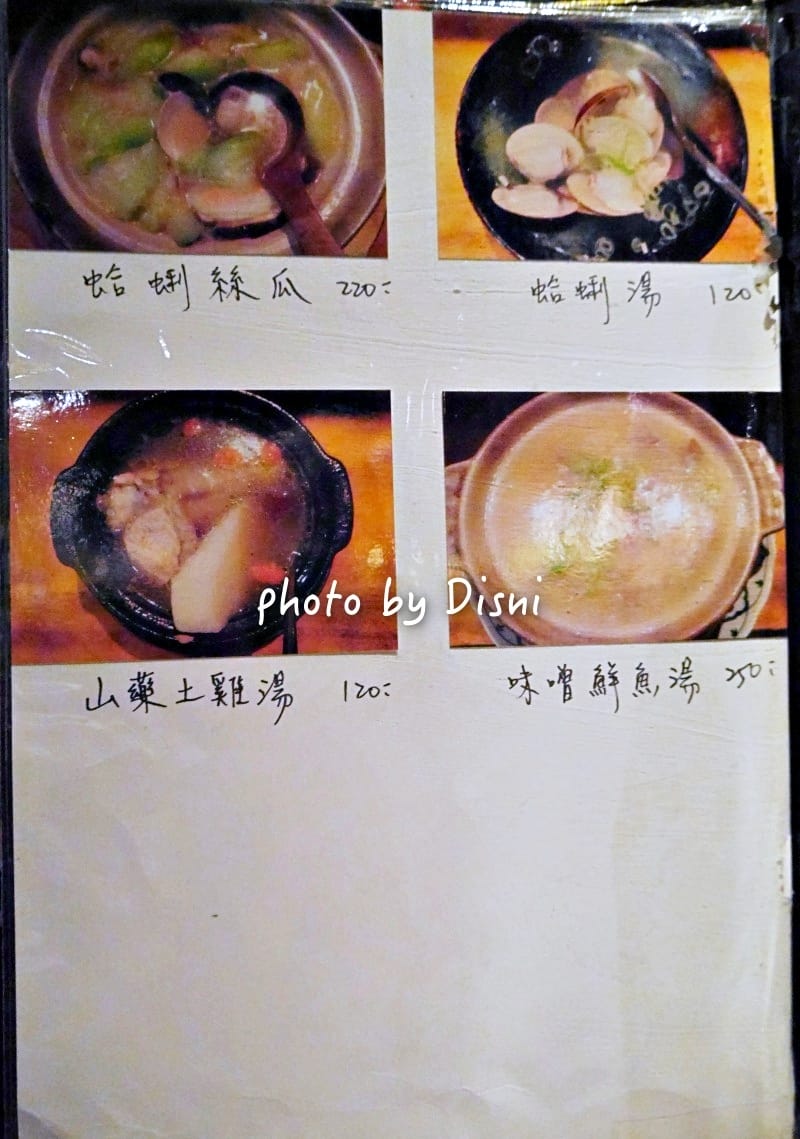 蛤蜊絲瓜 220:
蛤蜊湯 120:
photo by Disni
山藥土雞湯 120:
味噌鮮魚湯 250: